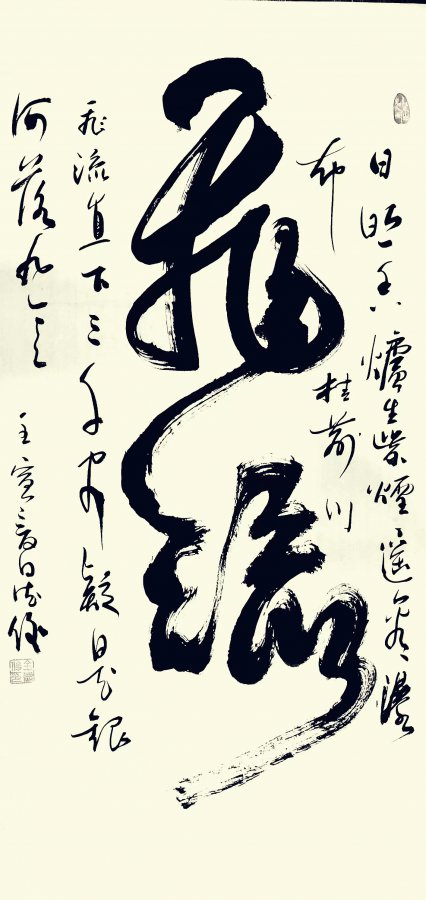 日照香爐生紫煙遙看瀑
布
挂前川
飛流
飛流直下三千尺疑是銀
河落九天
壬寅